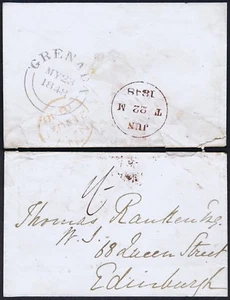 GRENADA
MY 23
1848
JUN
T 22 M
1848
1/-
Thomas Ranken Esq.
W.S.
68 Queen Street
Edinburgh